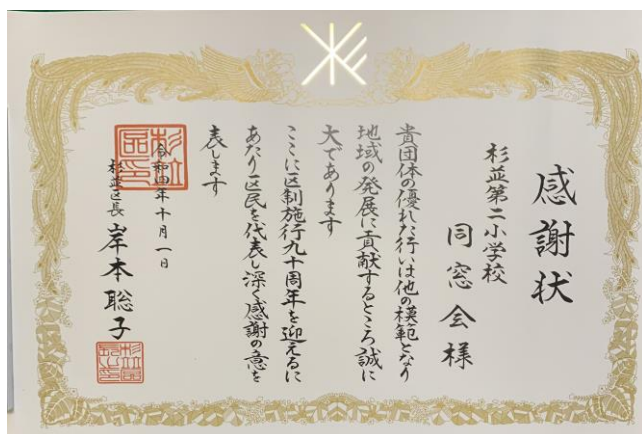 感謝状
杉並第二小学校
同窓会様
貴団体の優れた行いは他の模範となり
地域の発展に貢献するところ誠に
大であります
ここに区制施行九十周年を迎えるに
あたり区民を代表し深く感謝の意を
表します
令和四年十月一日
杉並区長 岸本聡子
杉並区印